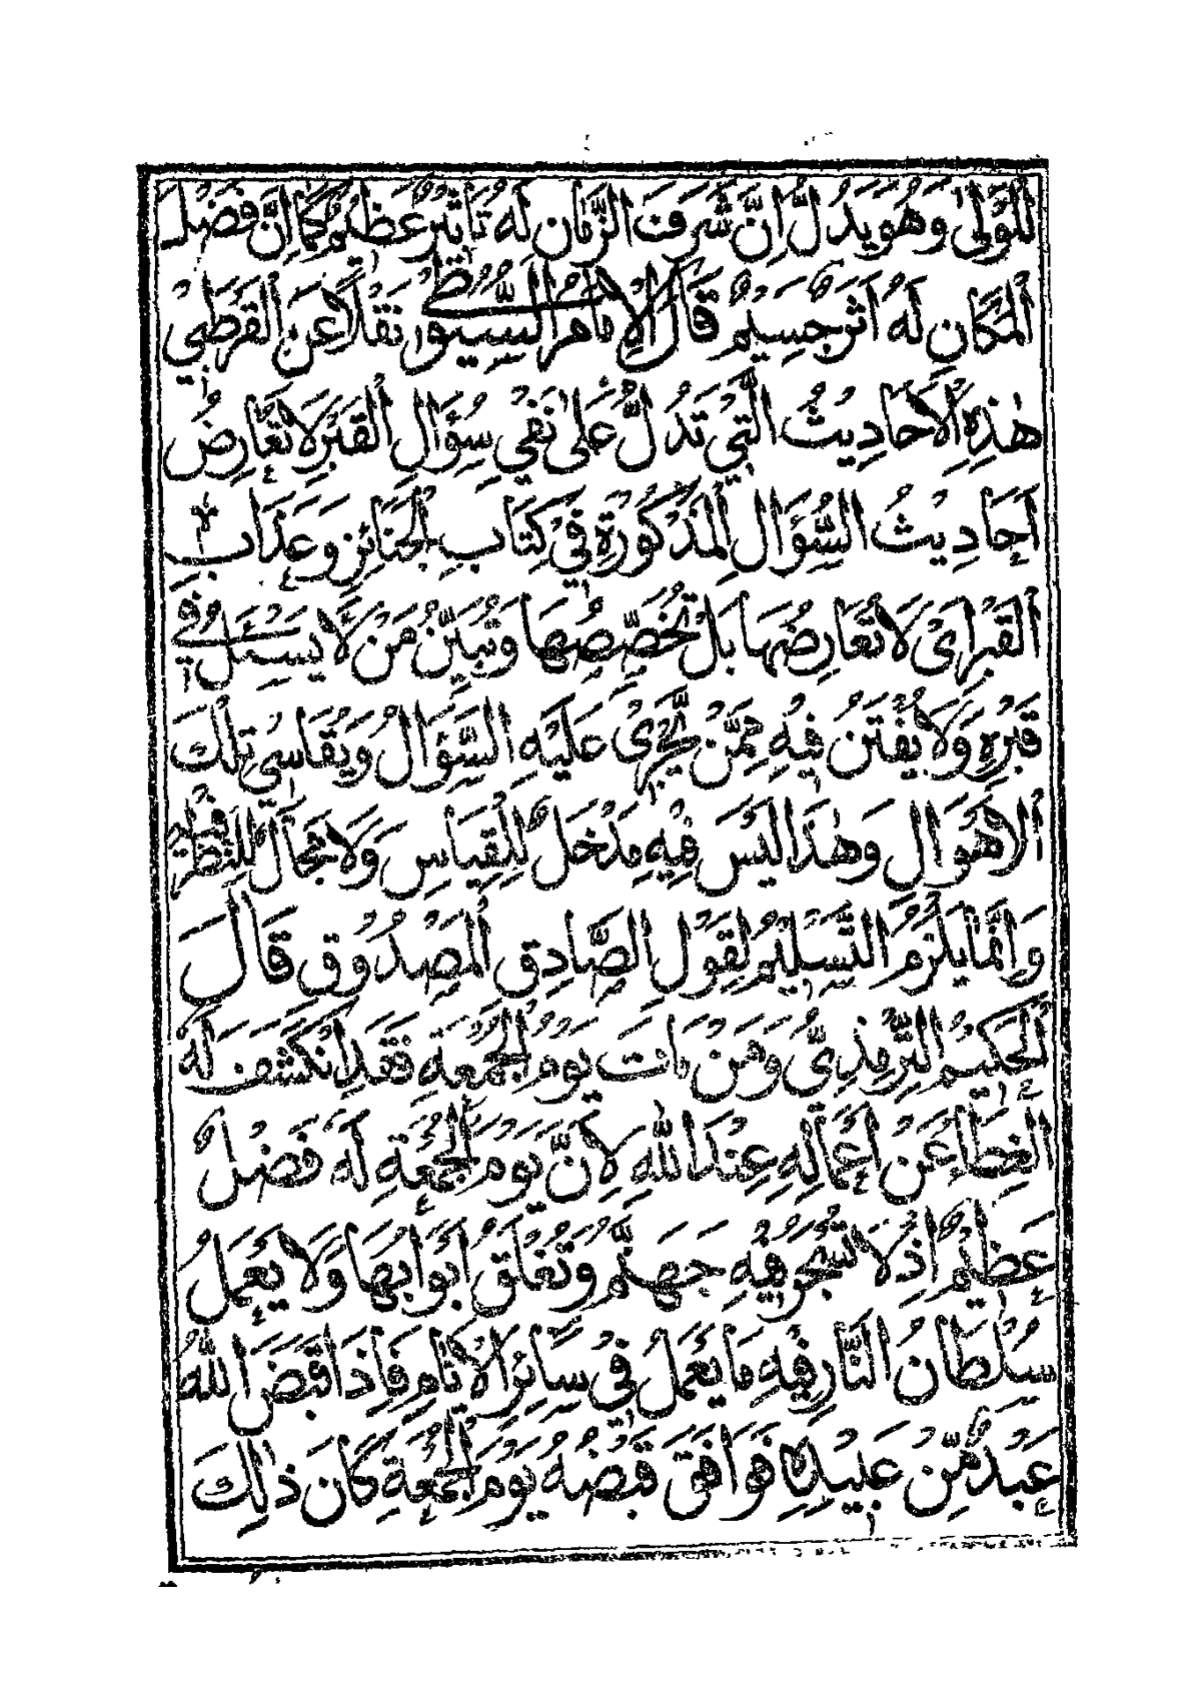 لِلْمَوْلٰى وَهُوَ يَدُلُّ اِنَّ شَرَفَ الزَّمَانِ لَهُ تَاثِيْرٌ عَظِيْمٌ كَمَا اِنَّ فَضْلَ
الْمَكَانِ لَهُ اَثَرٌ جَسِيْمٌ قَالَ الْاِمَامُ السُّيُوْطِيُّ نَقْلًا عَنِ الْقُرْطُبِيِّ
هٰذِهِ الْاَحَادِيْثُ الَّتِيْ تَدُلُّ عَلٰى نَفْيِ سُؤَالِ الْقَبْرِ لَا تُعَارِضُ
اَحَادِيْثَ السُّؤَالِ الْمَذْكُوْرَةِ فِيْ كِتَابِ الْجَنَائِزِ وَعَذَابِ
الْقَبْرِ اَيْ لَا تُعَارِضُهَا بَلْ تُخَصِّصُهَا وَتُبَيِّنُ مَنْ لَا يُسْئَلُ فِيْ
قَبْرِهِ وَلَا يُفْتَنُ فِيْهِ مِمَّنْ يَجْرِيْ عَلَيْهِ السُّؤَالُ وَيُقَاسِيْ تِلْكَ
الْاَهْوَالَ وَهٰذَا لَيْسَ فِيْهِ مَدْخَلٌ لِلْقِيَاسِ وَلَا مَجَالٌ لِلنَّظْرِ فِيْهِ
وَاِنَّمَا يَلْزَمُ التَّسْلِيْمُ لِقَوْلِ الصَّادِقِ الْمَصْدُوْقِ قَالَ
الْحَكِيْمُ التِّرْمِذِيُّ وَمَنْ مَاتَ يَوْمَ الْجُمُعَةِ فَقَدِ انْكَشَفَ لَهُ
الْغِطَاءُ عَنْ اَعْمَالِهِ عِنْدَ اللّٰهِ لِاَنَّ يَوْمَ الْجُمُعَةِ لَهُ فَضْلٌ
عَظِيْمٌ اِذْ لَا تُسْجَرُ فِيْهِ جَهَنَّمُ وَتُغْلَقُ اَبْوَابُهَا وَلَا يَعْمَلُ
سُلْطَانُ النَّارِ فِيْهِ مَا يَعْمَلُ فِيْ سَائِرِ الْاَيَّامِ فَاِذَا قَبَضَ اللّٰهُ
عَبْدًا مِّنْ عَبِيْدِهِ فَوَافَقَ قَبْضُهُ يَوْمَ الْجُمُعَةِ كَانَ ذٰلِكَ